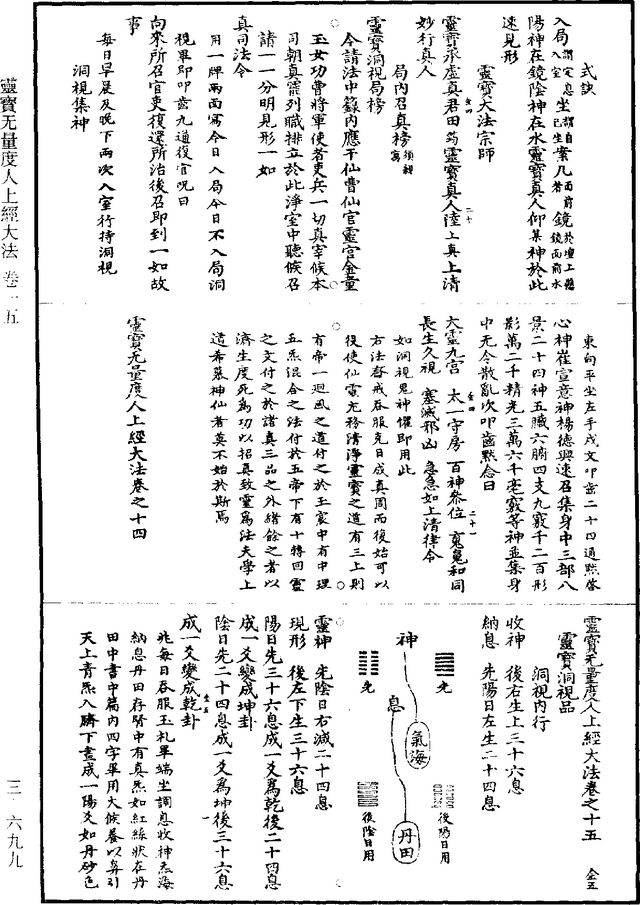 式訣
入局謂定息入室坐謂自己生案几面前若鏡於壇上懸鏡面前水
陽神在鏡陰神在水靈寶真人仰某神於此
速見形
靈寶大法宗師
靈寶承虛真君田芶靈寶真人陸上真上清
妙行真人
局內召真榜須詞寫
靈寶洞視局榜
今請法中籙內應干仙曹仙官靈官金童
玉女功曹將軍使者吏兵一切真宰候本
司朝真靈列職排立於此淨室中聽候召
請一一分明見形一如
真司法令
用一牌兩面寫今日入局今日不入局洞
視畢即叩齒九通復官呪曰
向來所召官吏復還所治後召即到一如故
事
每日早晨及晚下兩次入室行持洞視
洞視集神
東向平坐左手戌文叩齒二十四通默啓
心神崔宣意神楊德興速召集身中三部八
景二十四神五臟六腑四支九竅千二百形
影萬二千精光三萬六千毫竅等神並集身
中无令散亂次叩齒默念曰
大靈九宮 太一守房 百神叅位 䰟魄和同
長生久視 塞滅邪凶 急急如上清律令
如洞視鬼神懼即用此
右法齋戒吞服克日成真周而後始可以
役使仙靈尤務清淨靈寶之道有三上則
有帝一迴風之道付之於玉宸中有中理
五炁混合之法付於五帝下有十轉回靈
之文付之於諸真三品之外緒餘之者以
濟生度死為功以招真致靈爲法夫學上
道希慕神仙者莫不始於斯焉
靈寶无量度人上經大法卷之十四
靈寶无量度人上經大法卷之十五
靈寶洞視品
洞視內行
收神 後右生上三十六息
納息 先陽日左生二十四息
先
後陽日用
神
氣海
息
丹田
先
後陰日用
靈神 先陰日右減二十四息
現形 後左下生三十六息
陽日先三十六息成一爻爲乾後二十四息
成一爻變成坤卦
陰日先二十四息成一爻爲坤後三十六息
成一爻變成乾卦
兆每日吞服玉札畢端坐調息收神炁海
納息丹田存腎中有真炁如紅綿狀在丹
田中書中篇內四字畢用大候養以鼻引
天上青炁入臍下畫成一陽爻如丹砂色
靈寶无量度人上經大法 卷一五
三·六九九